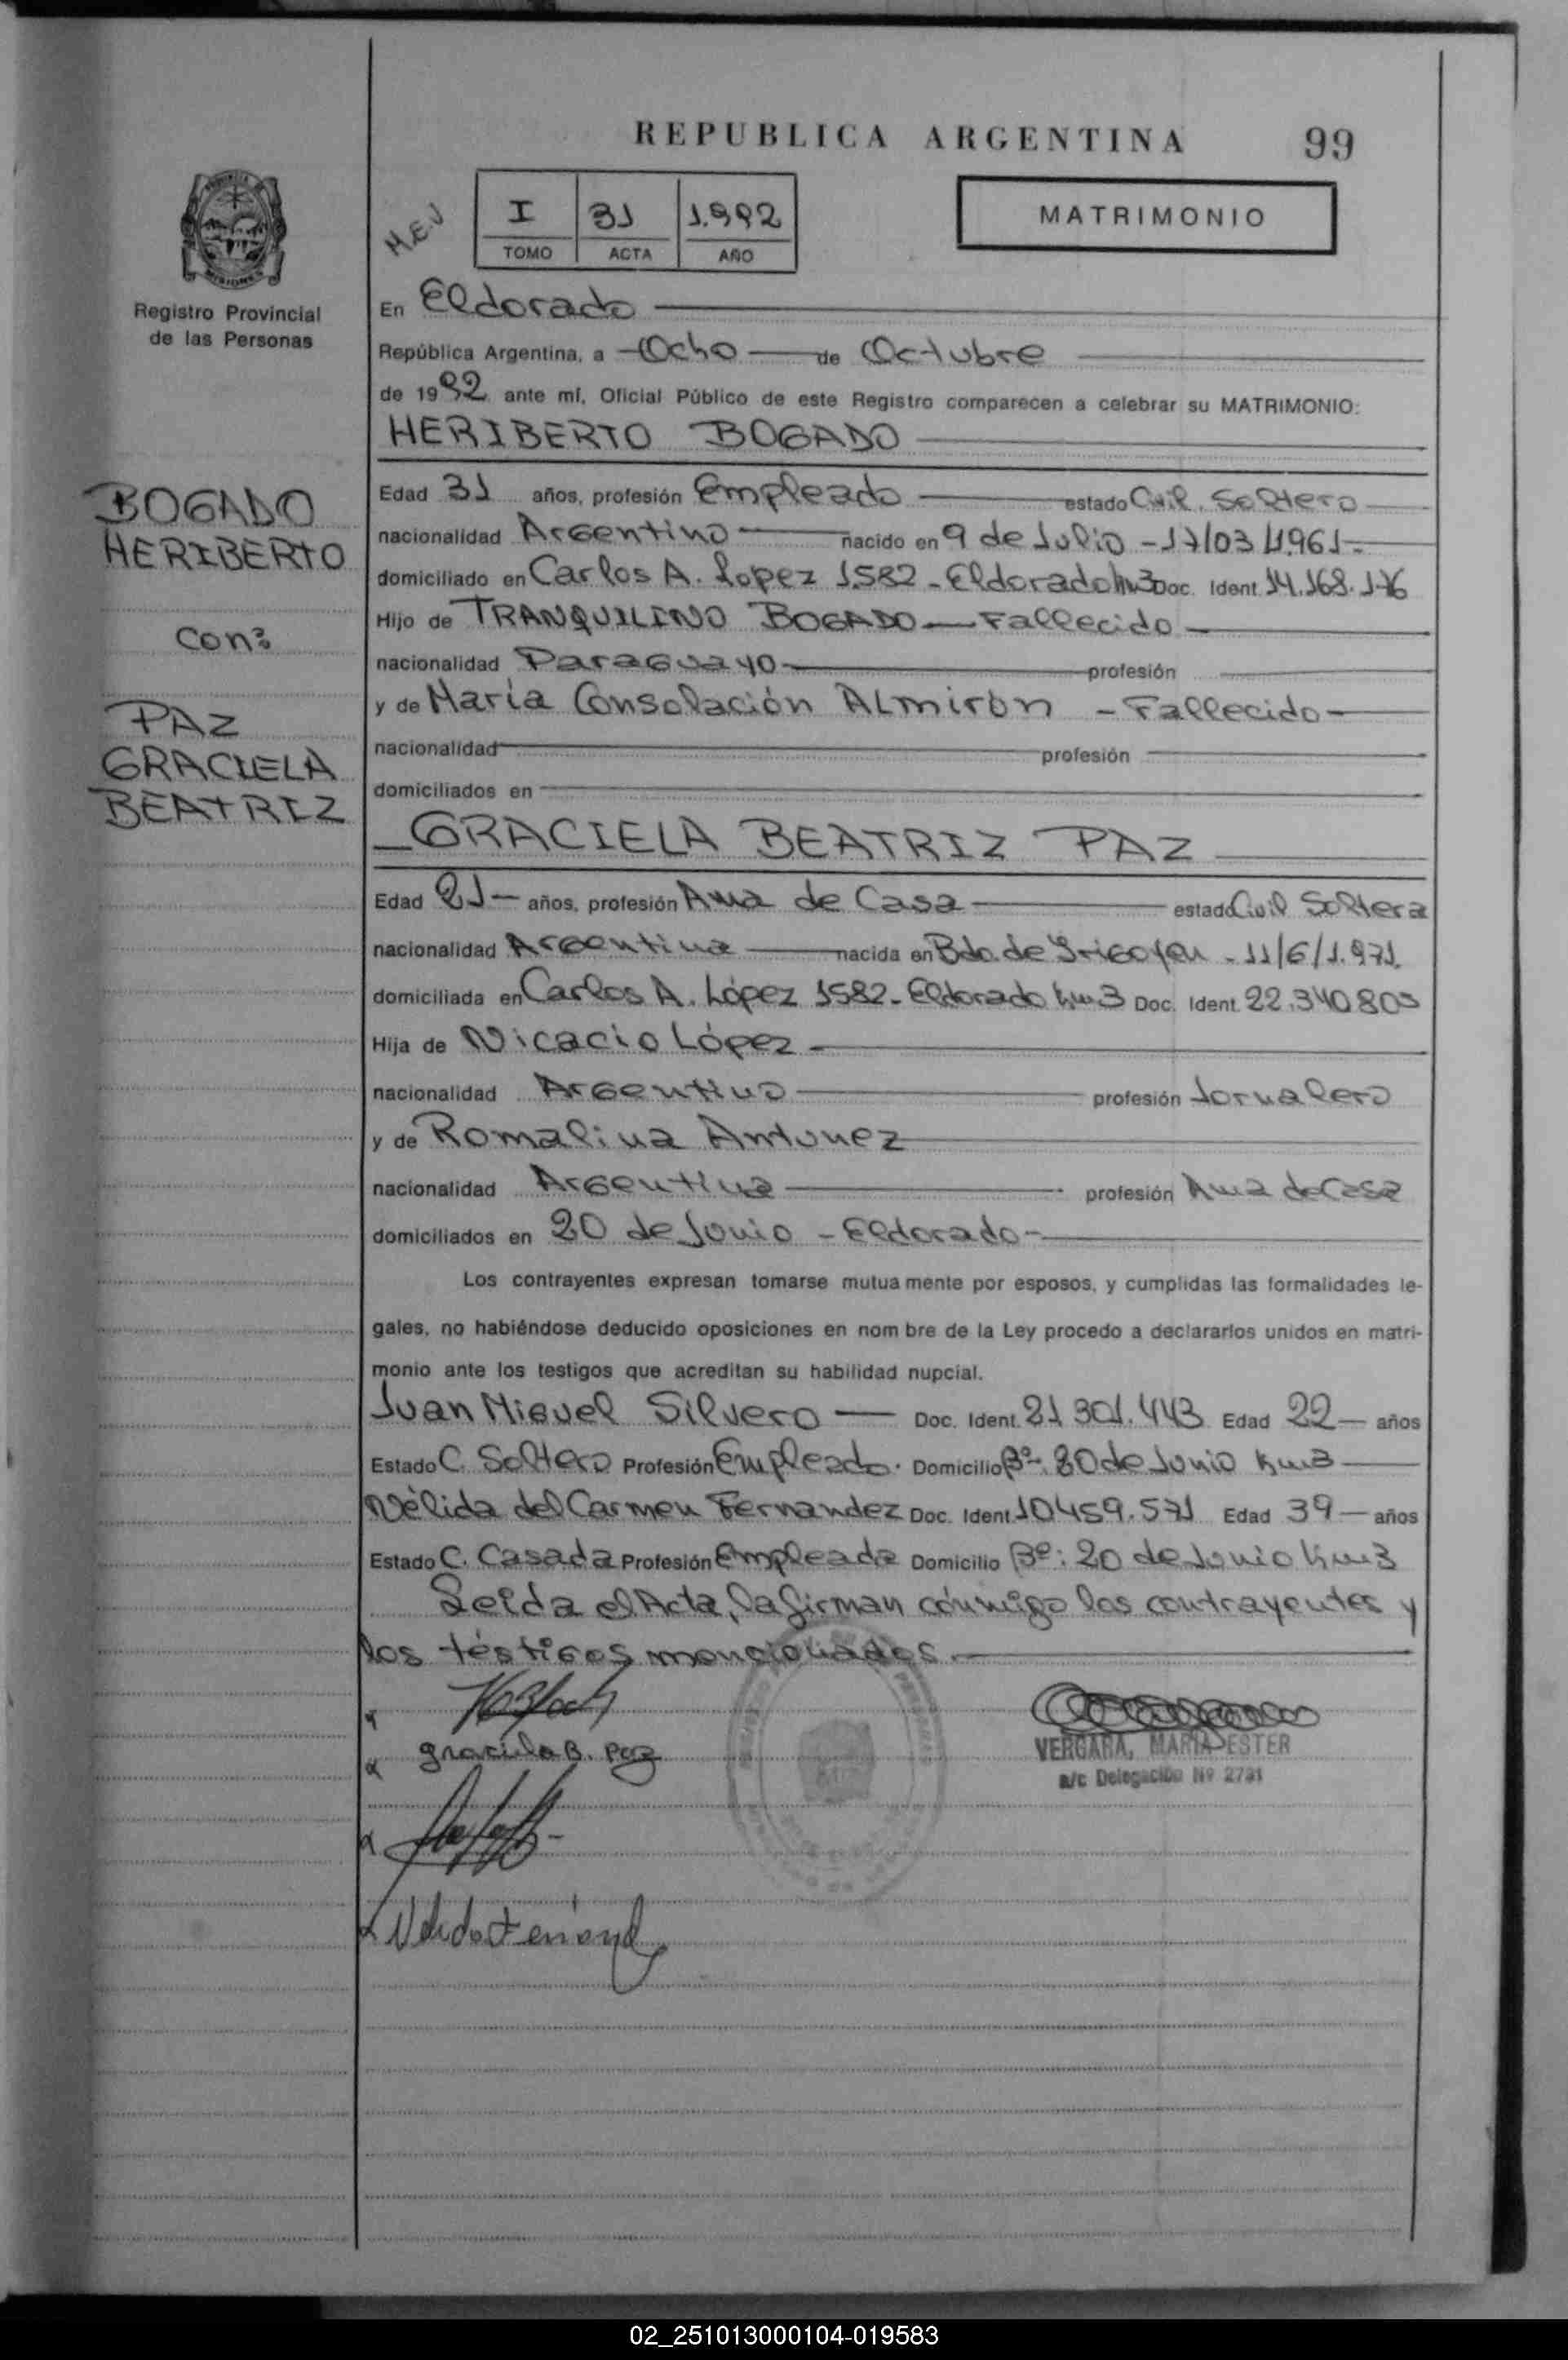 REPUBLICA ARGENTINA 99
PROVINCIA DE MISIONES
Registro Provincial
de las Personas
M.E.V
I 31 1.992
TOMO ACTA AÑO
MATRIMONIO
BOGADO
HERIBERTO
con:
PAZ
GRACIELA
BEATRIZ
En Eldorado
República Argentina, a Ocho de Octubre
de 1992 ante mí, Oficial Público de este Registro comparecen a celebrar su MATRIMONIO:
HERIBERTO BOGADO
Edad 31 años, profesión Empleado estado Civil. Soltero
nacionalidad Argentino nacido en 9 de Julio - 17/03/1961.
domiciliado en Carlos A. Lopez 1582 - Eldorado km3 Doc. Ident. 14.168.176
Hijo de TRANQUILINO BOGADO - Fallecido
nacionalidad Paraguayo profesión
y de María Consolación ALmirón - Fallecido
nacionalidad profesión
domiciliados en
GRACIELA BEATRIZ PAZ
Edad 21 años, profesión Ama de Casa estado Civil Soltera
nacionalidad Argentina nacida en Bdo. de Yrigoyen - 11/6/1.971.
domiciliada en Carlos A. López 1582 - Eldorado km3 Doc. Ident. 22.340.803
Hija de Nicacio López
nacionalidad Argentino profesión Jornalero
y de Romalina Antunez
nacionalidad Argentina profesión Ama de Casa
domiciliados en 20 de Junio - Eldorado
Los contrayentes expresan tomarse mutuamente por esposos, y cumplidas las formalidades le-
gales, no habiéndose deducido oposiciones en nombre de la Ley procedo a declararlos unidos en matri-
monio ante los testigos que acreditan su habilidad nupcial.
Juan Miguel Silvero Doc. Ident. 21.301.443 Edad 22 años
Estado C. Soltero Profesión Empleado. Domicilio Bº: 20 de Junio km3
Nélida del Carmen Fernandez Doc. Ident. 10.459.571 Edad 39 años
Estado C. Casada Profesión Empleada Domicilio Bº: 20 de Junio km3
Leída el Acta, la firman conmigo los contrayentes y
los testigos mencionados.
graciela B. Paz
VERGARA, MARIA ESTER
a/c Delegación Nº 2731
02_251013000104-019583